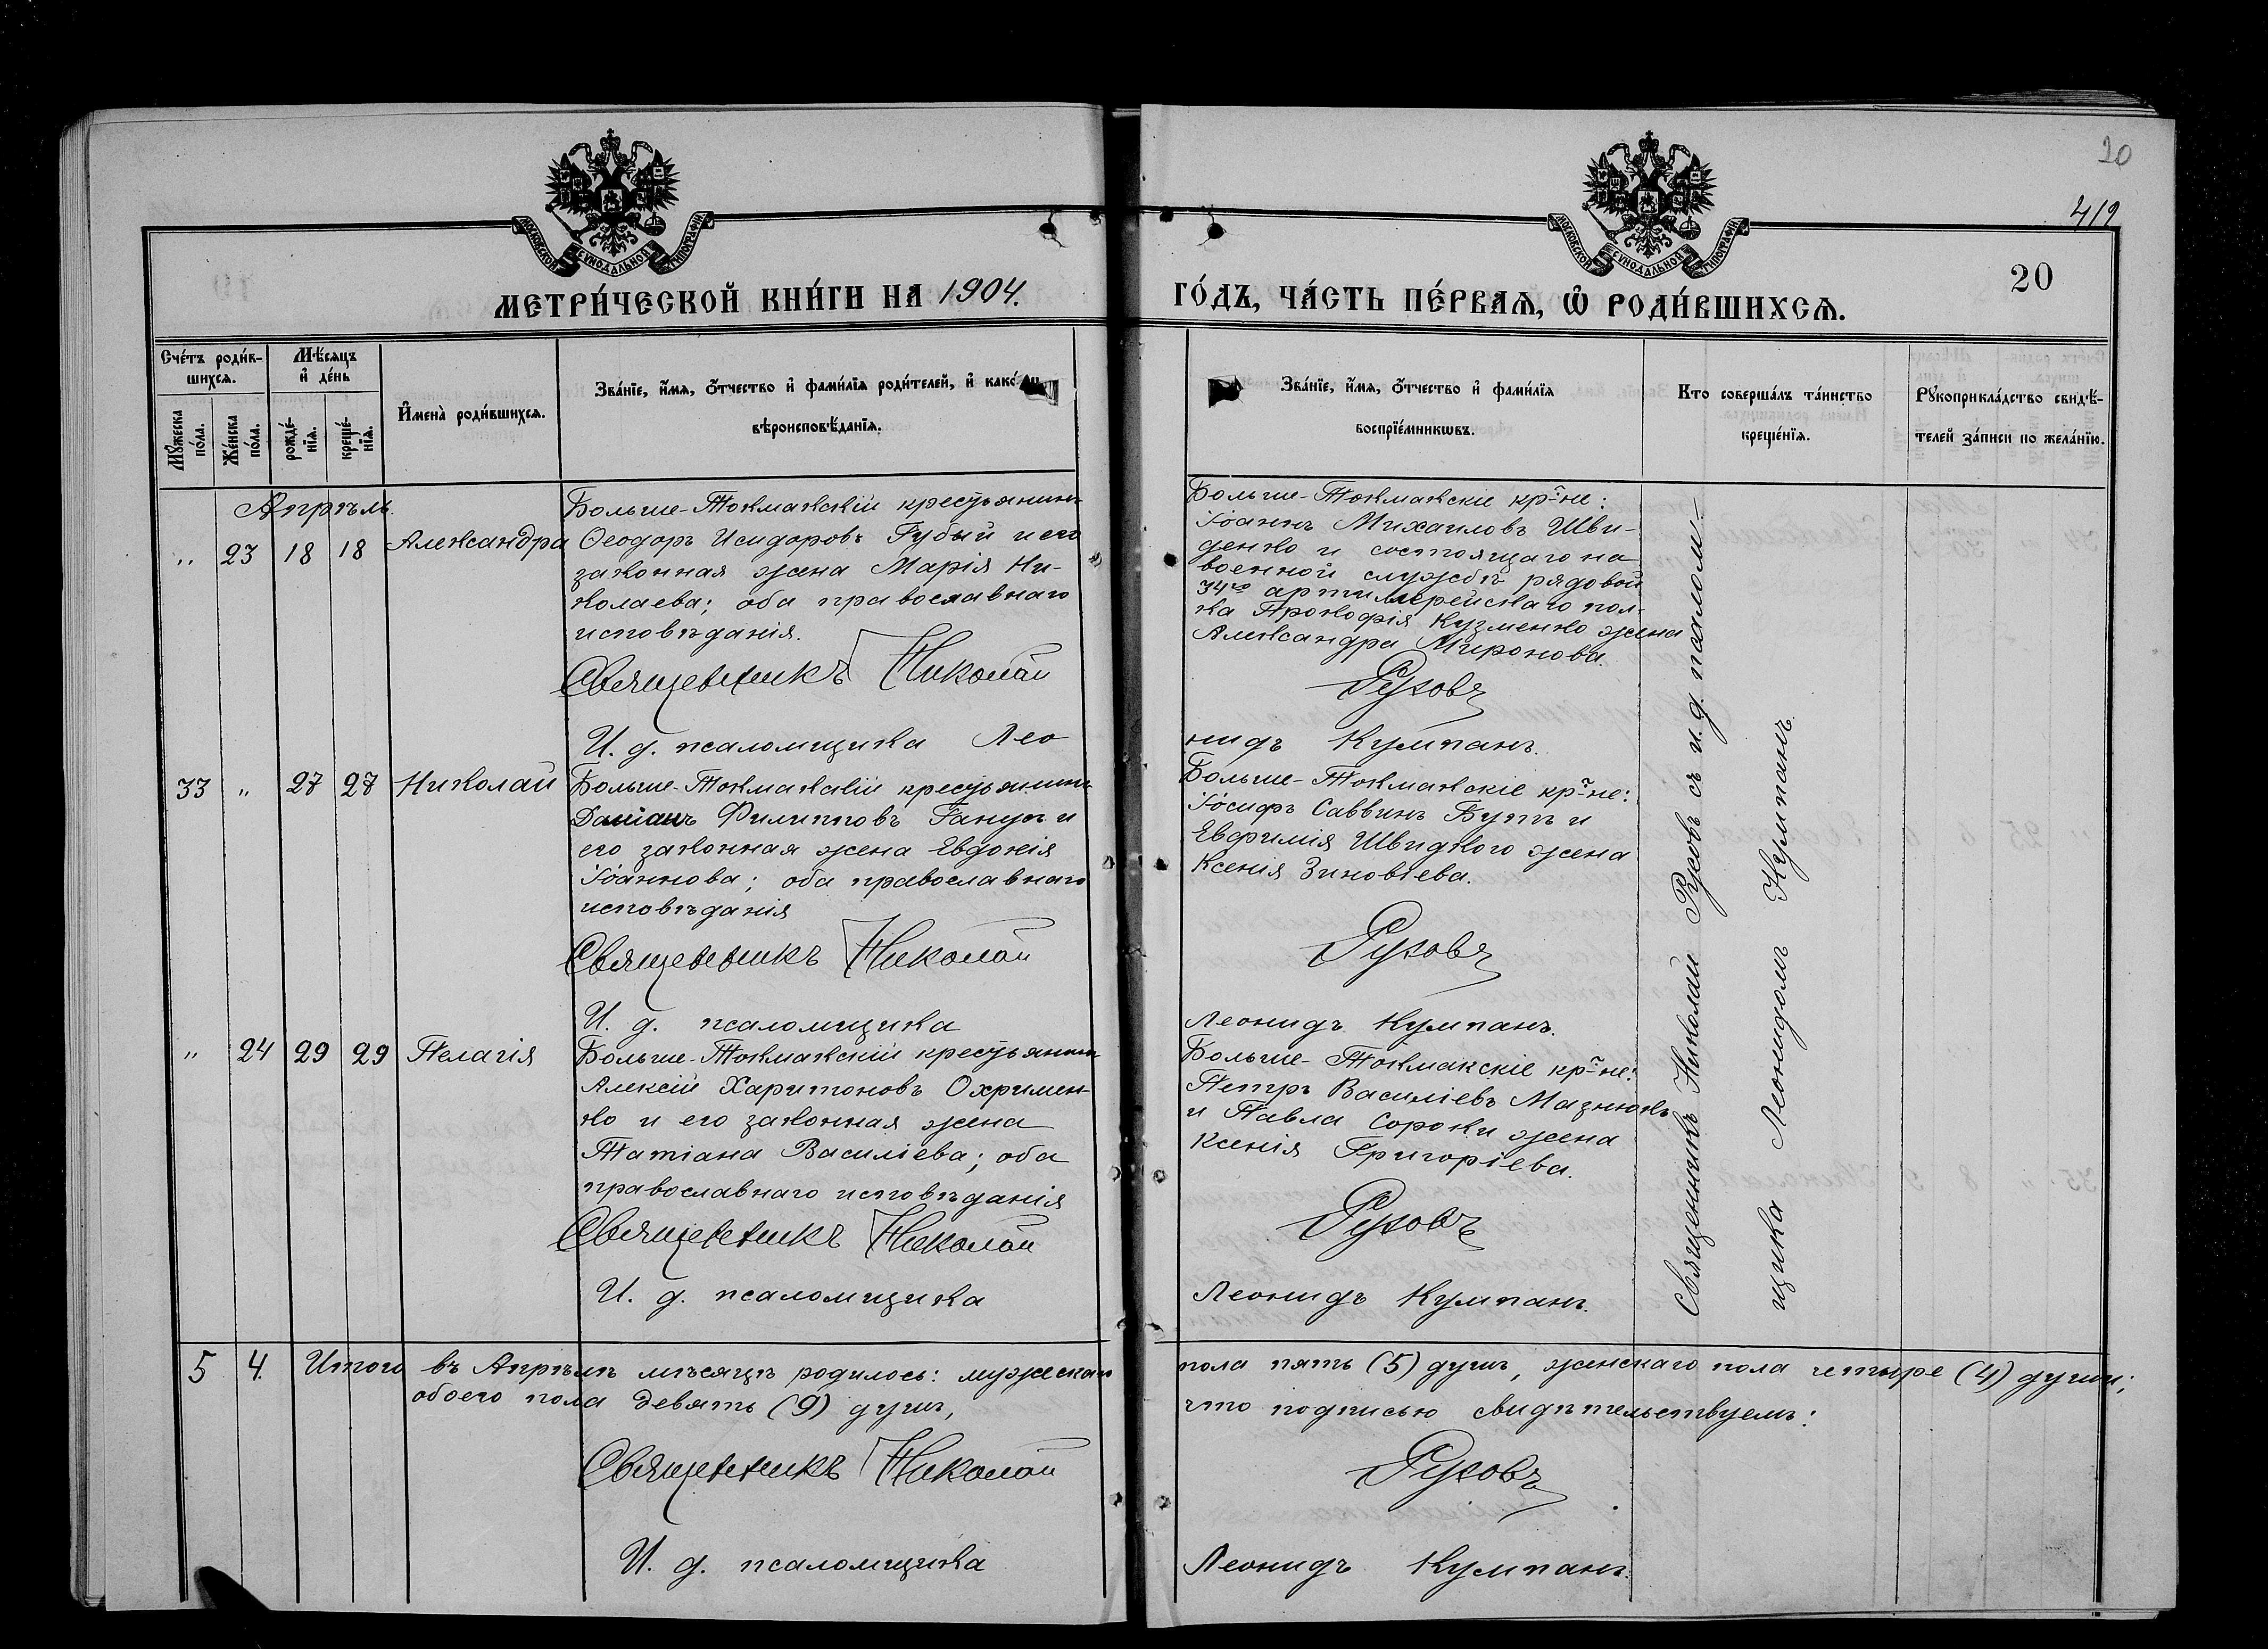 20
419
МОСКОВСКОЙ СѴНОДАЛЬНОЙ ТИПОГРАФІИ
МОСКОВСКОЙ СѴНОДАЛЬНОЙ ТИПОГРАФІИ
20
МЕТРИ́ЧЕСКОЙ КНИ́ГИ НА 1904.
ГО́ДЪ, ЧА́СТЬ ПЕ́РВАѦ, Ѽ РОДИ́ВШИХСѦ.
Сче́тъ роди́в-
шихсѧ.
Мꙋжеска по́ла.
Же́нска по́ла.
Мѣ́сѧцъ
и҆ де́нь
рожде́-
нїѧ.
креще́-
нїѧ.
И҆мена̀ роди́вшихсѧ.
Зва́нїе, и҆́мѧ, ѻ҆́тчество и҆ фами́лїѧ роди́телей, и҆ како́
вѣроисповѣ́данїѧ.
Зва́нїе, и҆́мѧ, ѻ҆́тчество и҆ фами́лїѧ
воспрїе́мникѡвъ.
Кто соверша́лъ та́инство
креще́нїѧ.
Рꙋкоприкла́дство свидѣ́-
телей за́писи по жела́нїю.
Апрѣль.
„ 23 18 18 Александра
Больше-Токмакскій крестьянинъ
Ѳеодоръ Исидоровъ Губый и его
законная жена Марія Ни-
колаева; оба православнаго
исповѣданія.
Священникъ Николай
И. д. псаломщика Лео
Больше-Токмакскіе кр-не:
Іоаннъ Михаиловъ Шви-
денко и состоящаго на
военной службѣ рядовой
34го артиллерейскаго пол-
ка Прокофія Кузменко жена
Александра Миронова.
Русовъ
нидъ Кумпанъ.
33 „ 27 27 Николай
Больше-Токмакскій крестьянинъ
Даміанъ Филипповъ Ганул и
его законная жена Евдокія
Іоаннова; оба православнаго
исповѣданія
Священникъ Николай
И. д. псаломщика
Больше-Токмакскіе кр-не:
Іосифъ Саввинъ Бутъ и
Евфимія Швидкого жена
Ксенія Зиновіева.
Русовъ
Леонидъ Кумпанъ.
„ 24 29 29 Пелагія
Больше-Токмакскій крестьянинъ
Алексій Харитоновъ Охримен-
ко и его законная жена
Татіана Василіева; оба
православнаго исповѣданія
Священникъ Николай
И. д. псаломщика
Больше-Токмакскіе кр-не:
Петръ Василіевъ Мазнюкъ
и Павла Сороки жена
Ксенія Григоріева.
Русовъ
Леонидъ Кумпанъ.
Священникъ Николай Русовъ съ и. д. псалом-
щика Леонидомъ Кумпанъ
5 4. Итого въ Апрѣлѣ мѣсяцѣ родилось: мужескаго
пола пять (5) душъ, женскаго пола четыре (4) души;
обоего пола девять (9) душъ,
что подписью свидѣтельствуемъ:
Священникъ Николай
Русовъ
И. д. псаломщика
Леонидъ Кумпанъ.